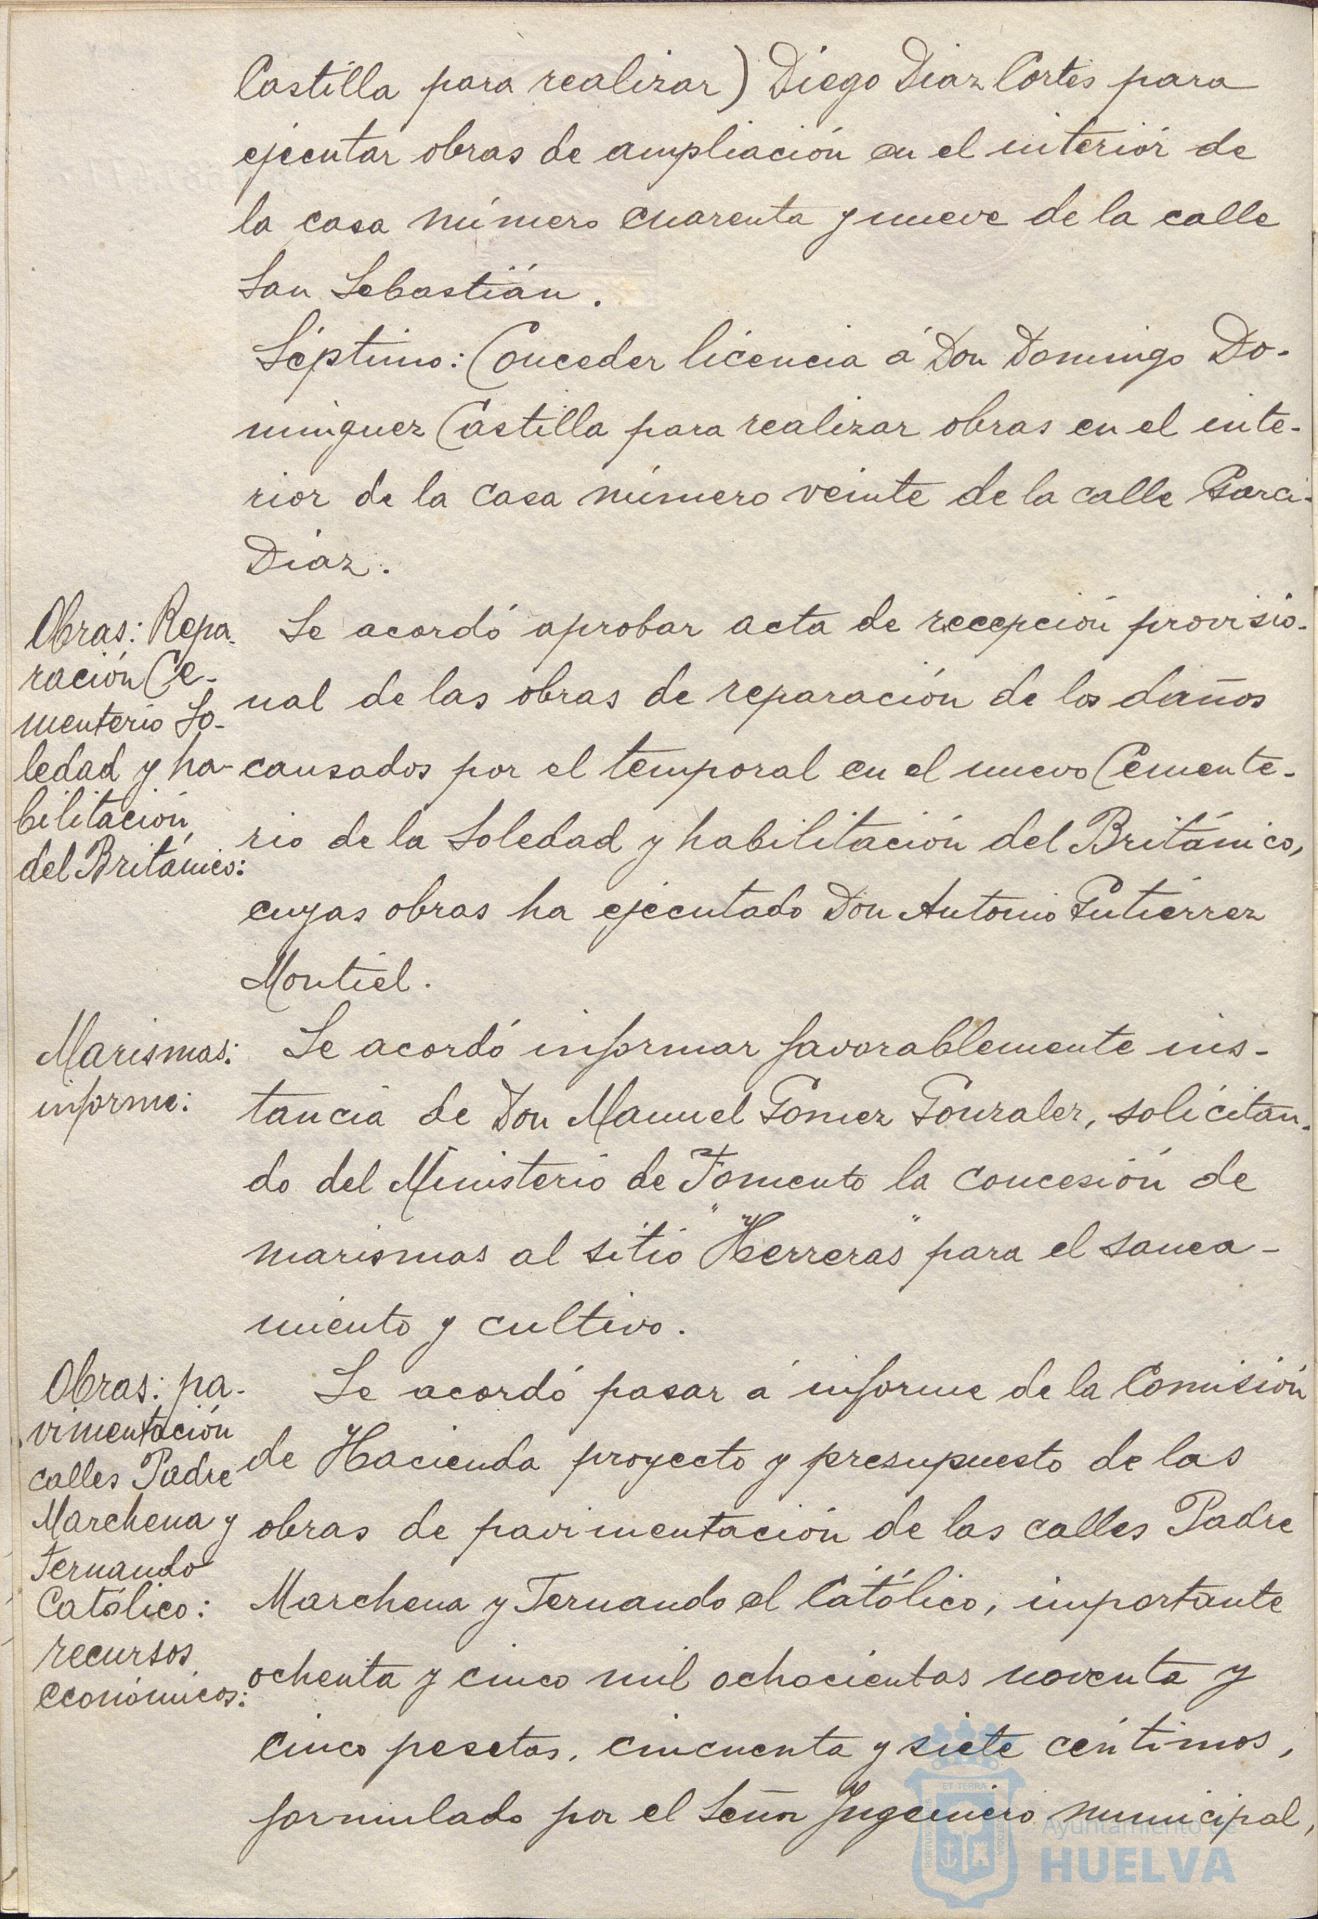 Castilla para realizar) Diego Diaz Cortés para
ejecutar obras de ampliación en el interior de
la casa número cuarenta y nueve de la calle
San Sebastián.
Séptimo: Conceder licencia á Don Domingo Do-
minguez Castilla para realizar obras en el inte-
rior de la casa número veinte de la calle Garci-
Diaz.
Obras: Repa-
ración Ce-
menterio So-
ledad y ha-
bilitación
del Británico:
Se acordó aprobar acta de recepción provisio-
nal de las obras de reparación de los daños
causados por el temporal en el nuevo Cemente-
rio de la Soledad y habilitación del Británico,
cuyas obras ha ejecutado Don Antonio Gutiérrez
Montiel.
Marismas:
informe:
Se acordó informar favorablemente ins-
tancia de Don Manuel Gómez González, solicitan-
do del Ministerio de Fomento la concesión de
marismas al sitio "Herreras" para el sanea-
miento y cultivo.
Obras: pa-
vimentación
calles Padre
Marchena y
Fernando
Católico:
recursos
económicos:
Se acordó pasar á informe de la Comisión
de Hacienda proyecto y presupuesto de las
obras de pavimentación de las calles Padre
Marchena y Fernando el Católico, importante
ochenta y cinco mil ochocientas noventa y
cinco pesetas, cincuenta y siete céntimos,
formulado por el Señor Ingeniero municipal,
Ayuntamiento de
HUELVA